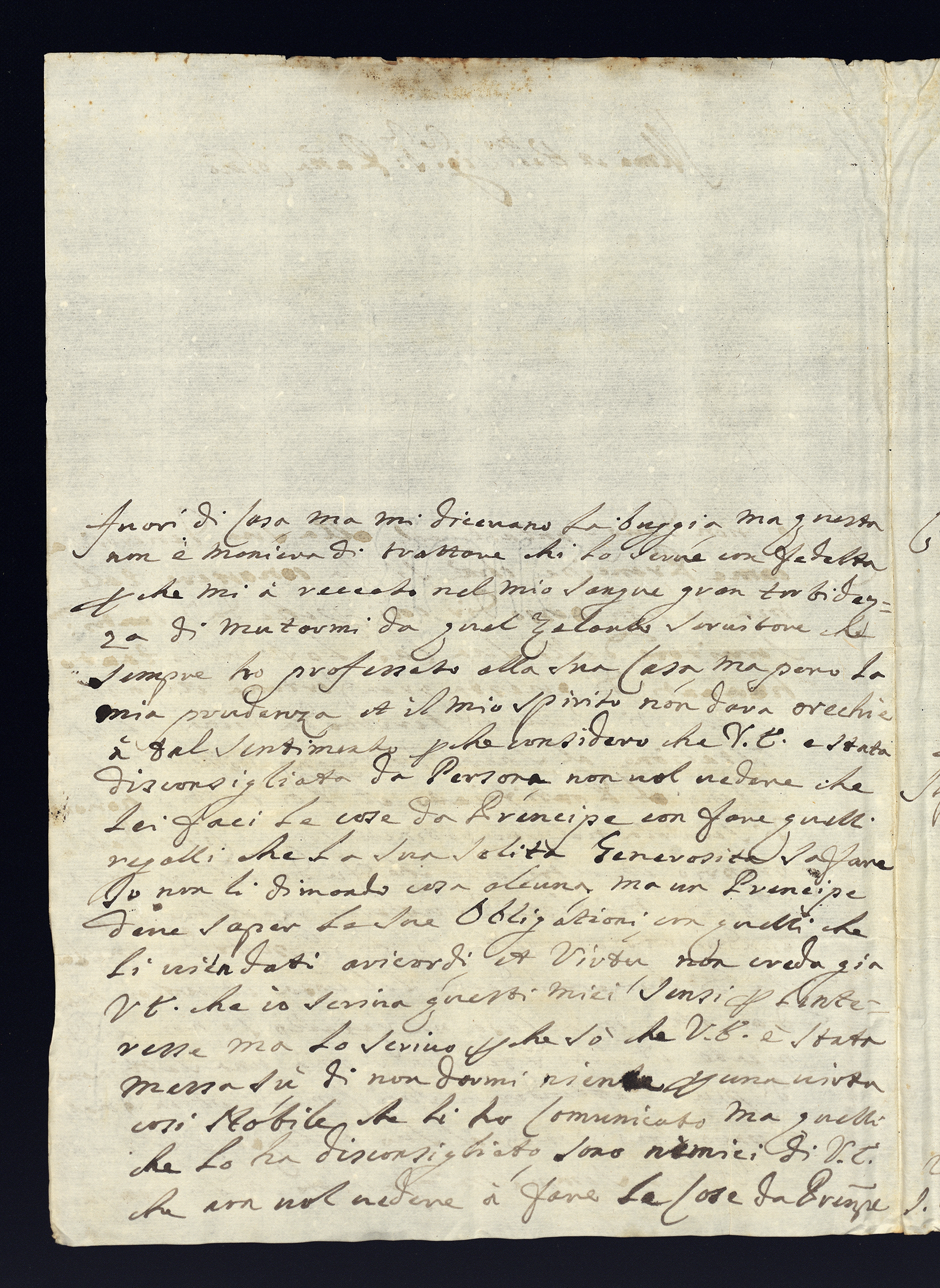 fuori di Casa ma mi diceuano la buggia ma questa
non è maniera di trattare chi lo serue con fedelta
p che mi à reccato nel mio sangue gran torbidez=
za di mutarmi da quel Zelante Seruitore che
sempre ho professato alla sua Casa, ma pero la
mia prudenza et il mio spirito non dava orechie
à tal sentimento p che considero che V.E. e stata
disconsigliata da Persona non uol uedere che
lei faci le cose da Principe con fare quelli
regalli che la sua solita Generosita sa fare
Io non li dimando cosa alcuna, ma un Prencipe
deue saper le sue Obligationi con quelli che
li dati aricordi, et Virtu, non creda gia
VE. che io scriua questi miei sensi p linte=
resse ma lo scriuo p che sò che V.E. è stata
messa sù di non darmi niente p una uirtu
cosi Nobile che li ho Comunicato ma quelli
che lo ha disconsigliato sono nemici di V.E.
che non uol uedere à fare le Cose da Prenpe